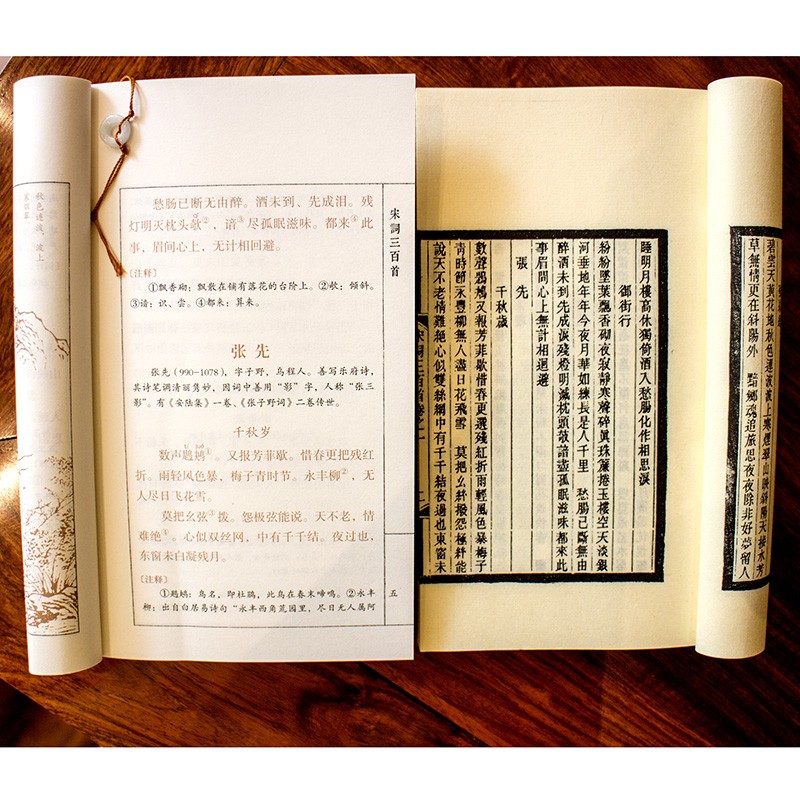 秋色连波，波上
寒烟翠。
愁肠已断无由醉。酒未到、先成泪。残
灯明灭枕头欹②，谙③尽孤眠滋味。都来④此
事，眉间心上，无计相回避。
〔注释〕
①飘香砌：飘散在铺有落花的台阶上。②欹：倾斜。
③谙：识、尝。④都来：算来。
张先
张先（990—1078），字子野，乌程人。善写乐府诗，
其诗笔调清丽隽妙，因词中善用“影”字，人称“张三
影”。有《安陆集》一卷、《张子野词》二卷传世。
千秋岁
数声鶗鴂①。又报芳菲歇。惜春更把残红
折。雨轻风色暴，梅子青时节。永丰柳②，无
人尽日飞花雪。
莫把幺弦③拨。怨极弦能说。天不老，情
难绝④。心似双丝网，中有千千结。夜过也，
东窗未白凝残月。
〔注释〕
①鶗鴂：鸟名，即杜鹃，此鸟在春末啼鸣。②永丰
柳：出自白居易诗句“永丰西角荒园里，尽日无人属阿
宋詞三百首
五
碧雲天黃花地秋色連波波上寒煙翠山映斜陽天接水芳
草無情更在斜陽外 黯鄉魂追旅思夜夜除非好夢留人
睡明月樓高休獨倚酒入愁腸化作相思淚
御街行
紛紛墜葉飄香砌夜寂靜寒聲碎眞珠簾捲玉樓空天淡銀
河垂地年年今夜月華如練長是人千里 愁腸已斷無由
醉酒未到先成淚殘燈明滅枕頭欹諳盡孤眠滋味都來此
事眉間心上無計相迴避
張先
千秋歲
數聲鶗鴂又報芳菲歇惜春更選殘紅折雨輕風色暴梅子
靑時節永豐柳無人盡日花飛雪 莫把幺絃撥怨極絃能
說天不老情難絕心似雙絲網中有千千結夜過也東窗未